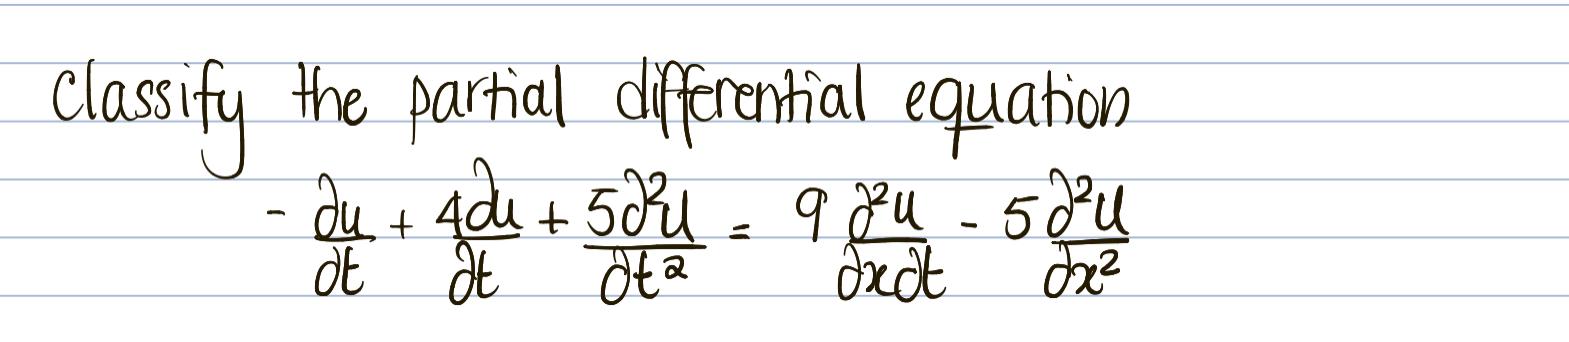 Classify the partial differential equation
- ∂u/∂t + 4∂u/∂t + 5∂²u/∂t² = 9 ∂²u/∂x∂t - 5 ∂²u/∂x²